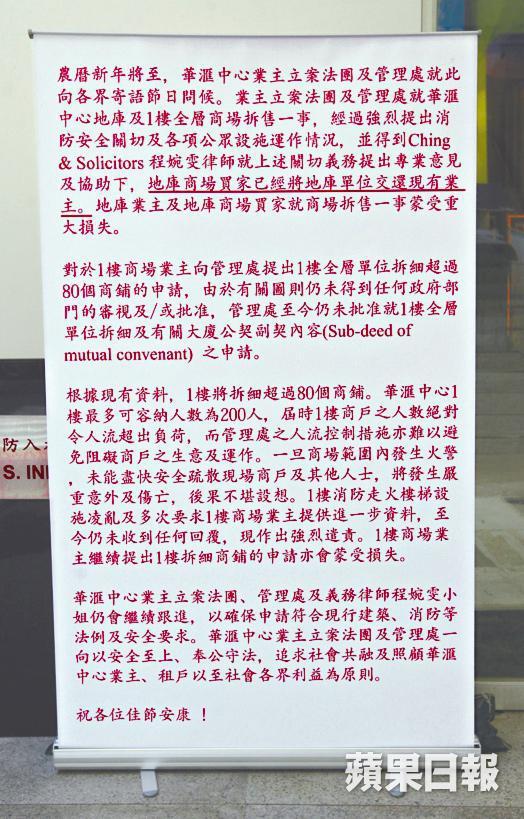 農曆新年將至，華滙中心業主立案法團及管理處就此
向各界寄語節日問候。業主立案法團及管理處就華滙
中心地庫及1樓全層商場拆售一事，經過強烈提出消
防安全關切及各項公眾設施運作情況，並得到Ching
& Solicitors 程婉雯律師就上述關切義務提出專業意見
及協助下，地庫商場買家已經將地庫單位交還現有業
主。地庫業主及地庫商場買家就商場拆售一事蒙受重
大損失。
對於1樓商場業主向管理處提出1樓全層單位拆細超過
80個商鋪的申請，由於有關圖則仍未得到任何政府部
門的審視及/或批准，管理處至今仍未批准就1樓全層
單位拆細及有關大廈公契副契內容(Sub-deed of
mutual convenant) 之申請。
根據現有資料，1樓將拆細超過80個商鋪。華滙中心1
樓最多可容納人數為200人，屆時1樓商戶之人數絕對
令人流超出負荷，而管理處之人流控制措施亦難以避
免阻礙商戶之生意及運作。一旦商場範圍內發生火警
，未能盡快安全疏散現場商戶及其他人士，將發生嚴
重意外及傷亡，後果不堪設想。1樓消防走火樓梯設
施凌亂及多次要求1樓商場業主提供進一步資料，至
今仍未收到任何回覆，現作出強烈遣責。1樓商場業
主繼續提出1樓拆細商鋪的申請亦會蒙受損失。
華滙中心業主立案法團、管理處及義務律師程婉雯小
姐仍會繼續跟進，以確保申請符合現行建築、消防等
法例及安全要求。華滙中心業主立案法團及管理處一
向以安全至上、奉公守法，追求社會共融及照顧華滙
中心業主、租戶以至社會各界利益為原則。
祝各位佳節安康 ！
防入
S. INI
蘋果日報